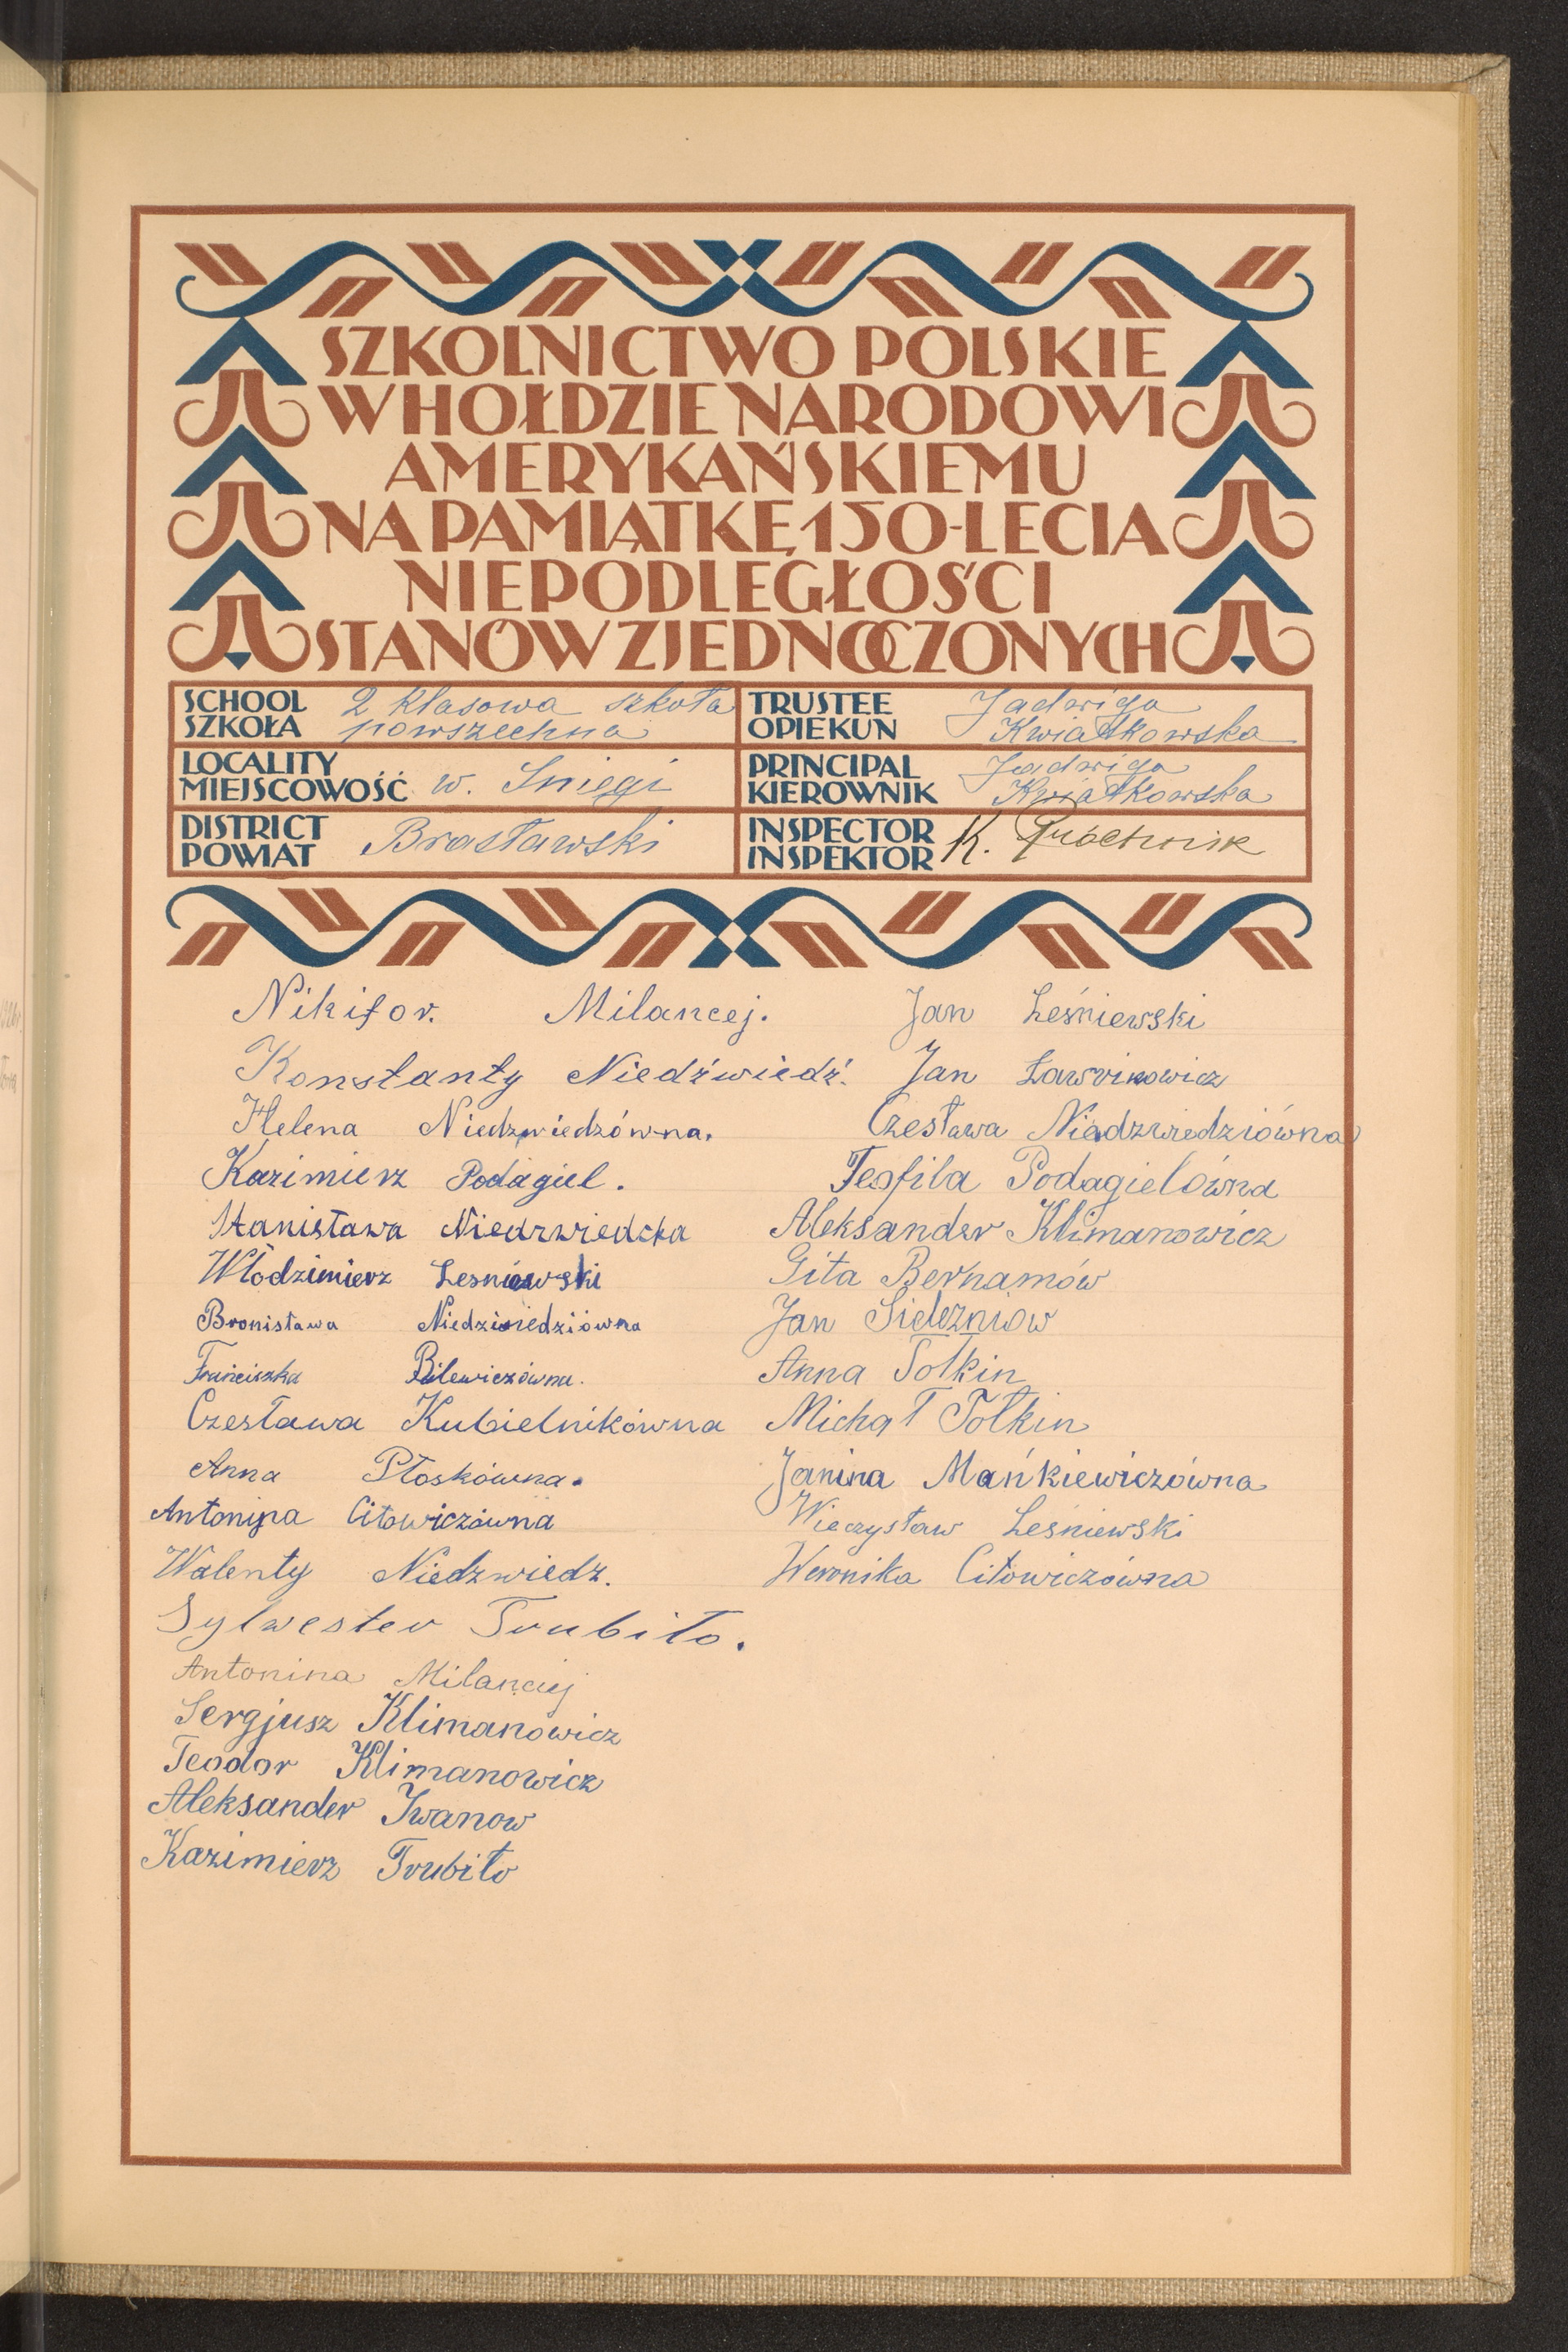 SZKOLNICTWO POLSKIE
W HOŁDZIE NARODOWI
AMERYKAŃSKIEMU
NA PAMIĄTKĘ 150-LECIA
NIEPODLEGŁOŚCI
STANÓW ZJEDNOCZONYCH
SCHOOL
SZKOŁA
2 klasowa szkoła
powszechna
TRUSTEE
OPIEKUN
Jadwiga
Kwiatkowska
LOCALITY
MIEJSCOWOŚĆ
w. Sniegi
PRINCIPAL
KIEROWNIK
Jadwiga
Kwiatkowska
DISTRICT
POWIAT
Brasławski
INSPECTOR
INSPEKTOR
K.
Nikifor. Milancej.
Konstanty Niedźwiedź.
Helena Niedzwiedzówna.
Kazimierz Podagiel.
Stanisława Niedzwiedzka
Włodzimierz Lesniewski
Bronisława Niedzwiedziówna
Franciszka Bilewiczówna.
Czesława Kubielnikówna
Anna Płoskówna.
Antonina Citowiczówna
Walenty Niedzwiedz.
Sylwester Trubiło.
Antonina Milanciej
Sergjusz Klimanowicz
Teodor Klimanowicz
Aleksander Iwanow
Kazimierz Trubiło
Jan Leśniewski
Jan Ławrinowicz
Czesława Niedzwiedziówna
Teofila Podagielówna
Aleksander Klimanowicz
Gita Bernamów
Jan Sielezniow
Anna Tołkin
Michał Tołkin
Janina Mańkiewiczówna
Wieczysław Leśniewski
Weronika Citowiczówna